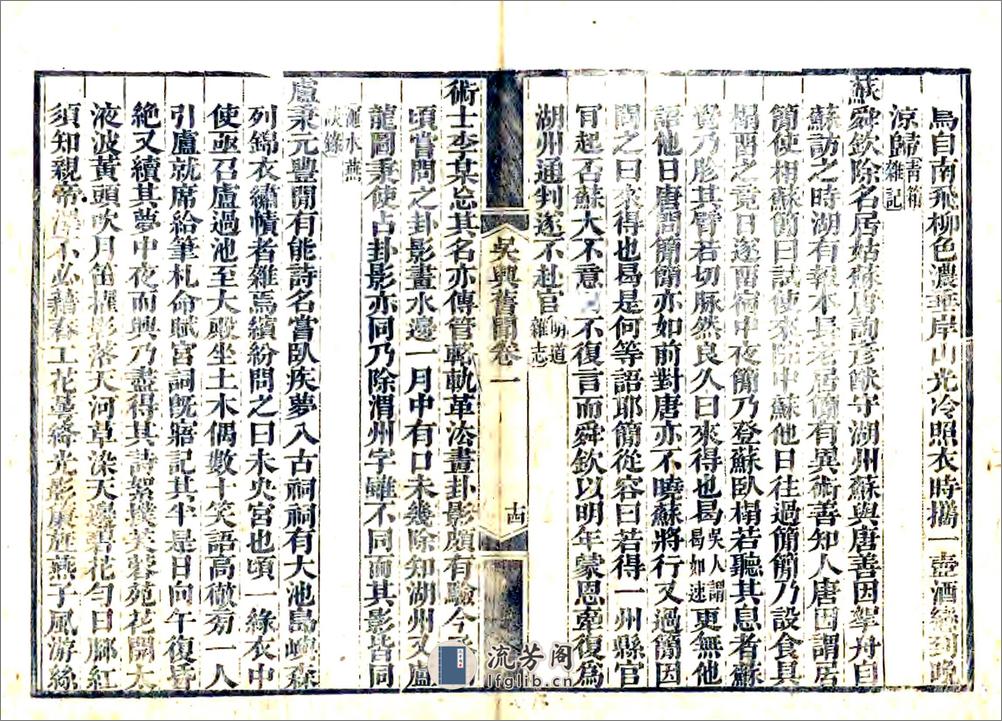 鳥自南飛柳色濃垂岸山光冷照衣時攜一壺酒戀到晚
涼歸青箱雜記
蘇舜欽除名居姑蘇唐詢彥猷守湖州蘇與唐善因拏舟自
蘇訪之時湖有報本長老居簡有異術善知人唐因謂居
簡使相蘇簡曰試使來院中蘇他日往過簡簡乃設食具
榻留之竟日遂留宿中夜簡乃登蘇臥榻若聽其息者蘇
覺乃胗其臂若切脉然良久曰來得也曷吳人謂曷如速更無他
語他日唐問簡簡亦如前對唐亦不曉蘇將行又過簡因
問之曰來得也曷是何等語耶簡從容曰若得一州縣官
肯起否蘇大不意 不復言而舜欽以明年蒙恩牽復爲
湖州通判遂不赴官明道雜志
吳興舊聞卷一
古
術士李某忘其名亦傳管輅軌革法畫卦影頗有驗今丞
頃嘗問之卦影畫水邊一月中有口未幾除知湖州又盧
龍圖秉使占卦影亦同乃除渭州字雖不同而其影皆同
澠水燕談錄
盧秉元豐閒有能詩名嘗臥疾夢入古祠祠有大池島嶼森
列錦衣繡幘者雜焉繽紛問之曰未央宮也頃一綠衣中
使亟召盧過池至大殿坐土木偶數十笑語高徹旁一人
引盧就席給筆札命賦宮詞旣寤記其半是日向午復昏
絶又續其夢中夜而興乃盡得其詩絮撲芙蓉苑花開太
液波黃頭吹月笛 影落天河草染天邊碧花勻日腳紅
須知親帝澤不必藉春工花蔓綘光影 旌燕子風游絲
流芳阁
lfglib.cn